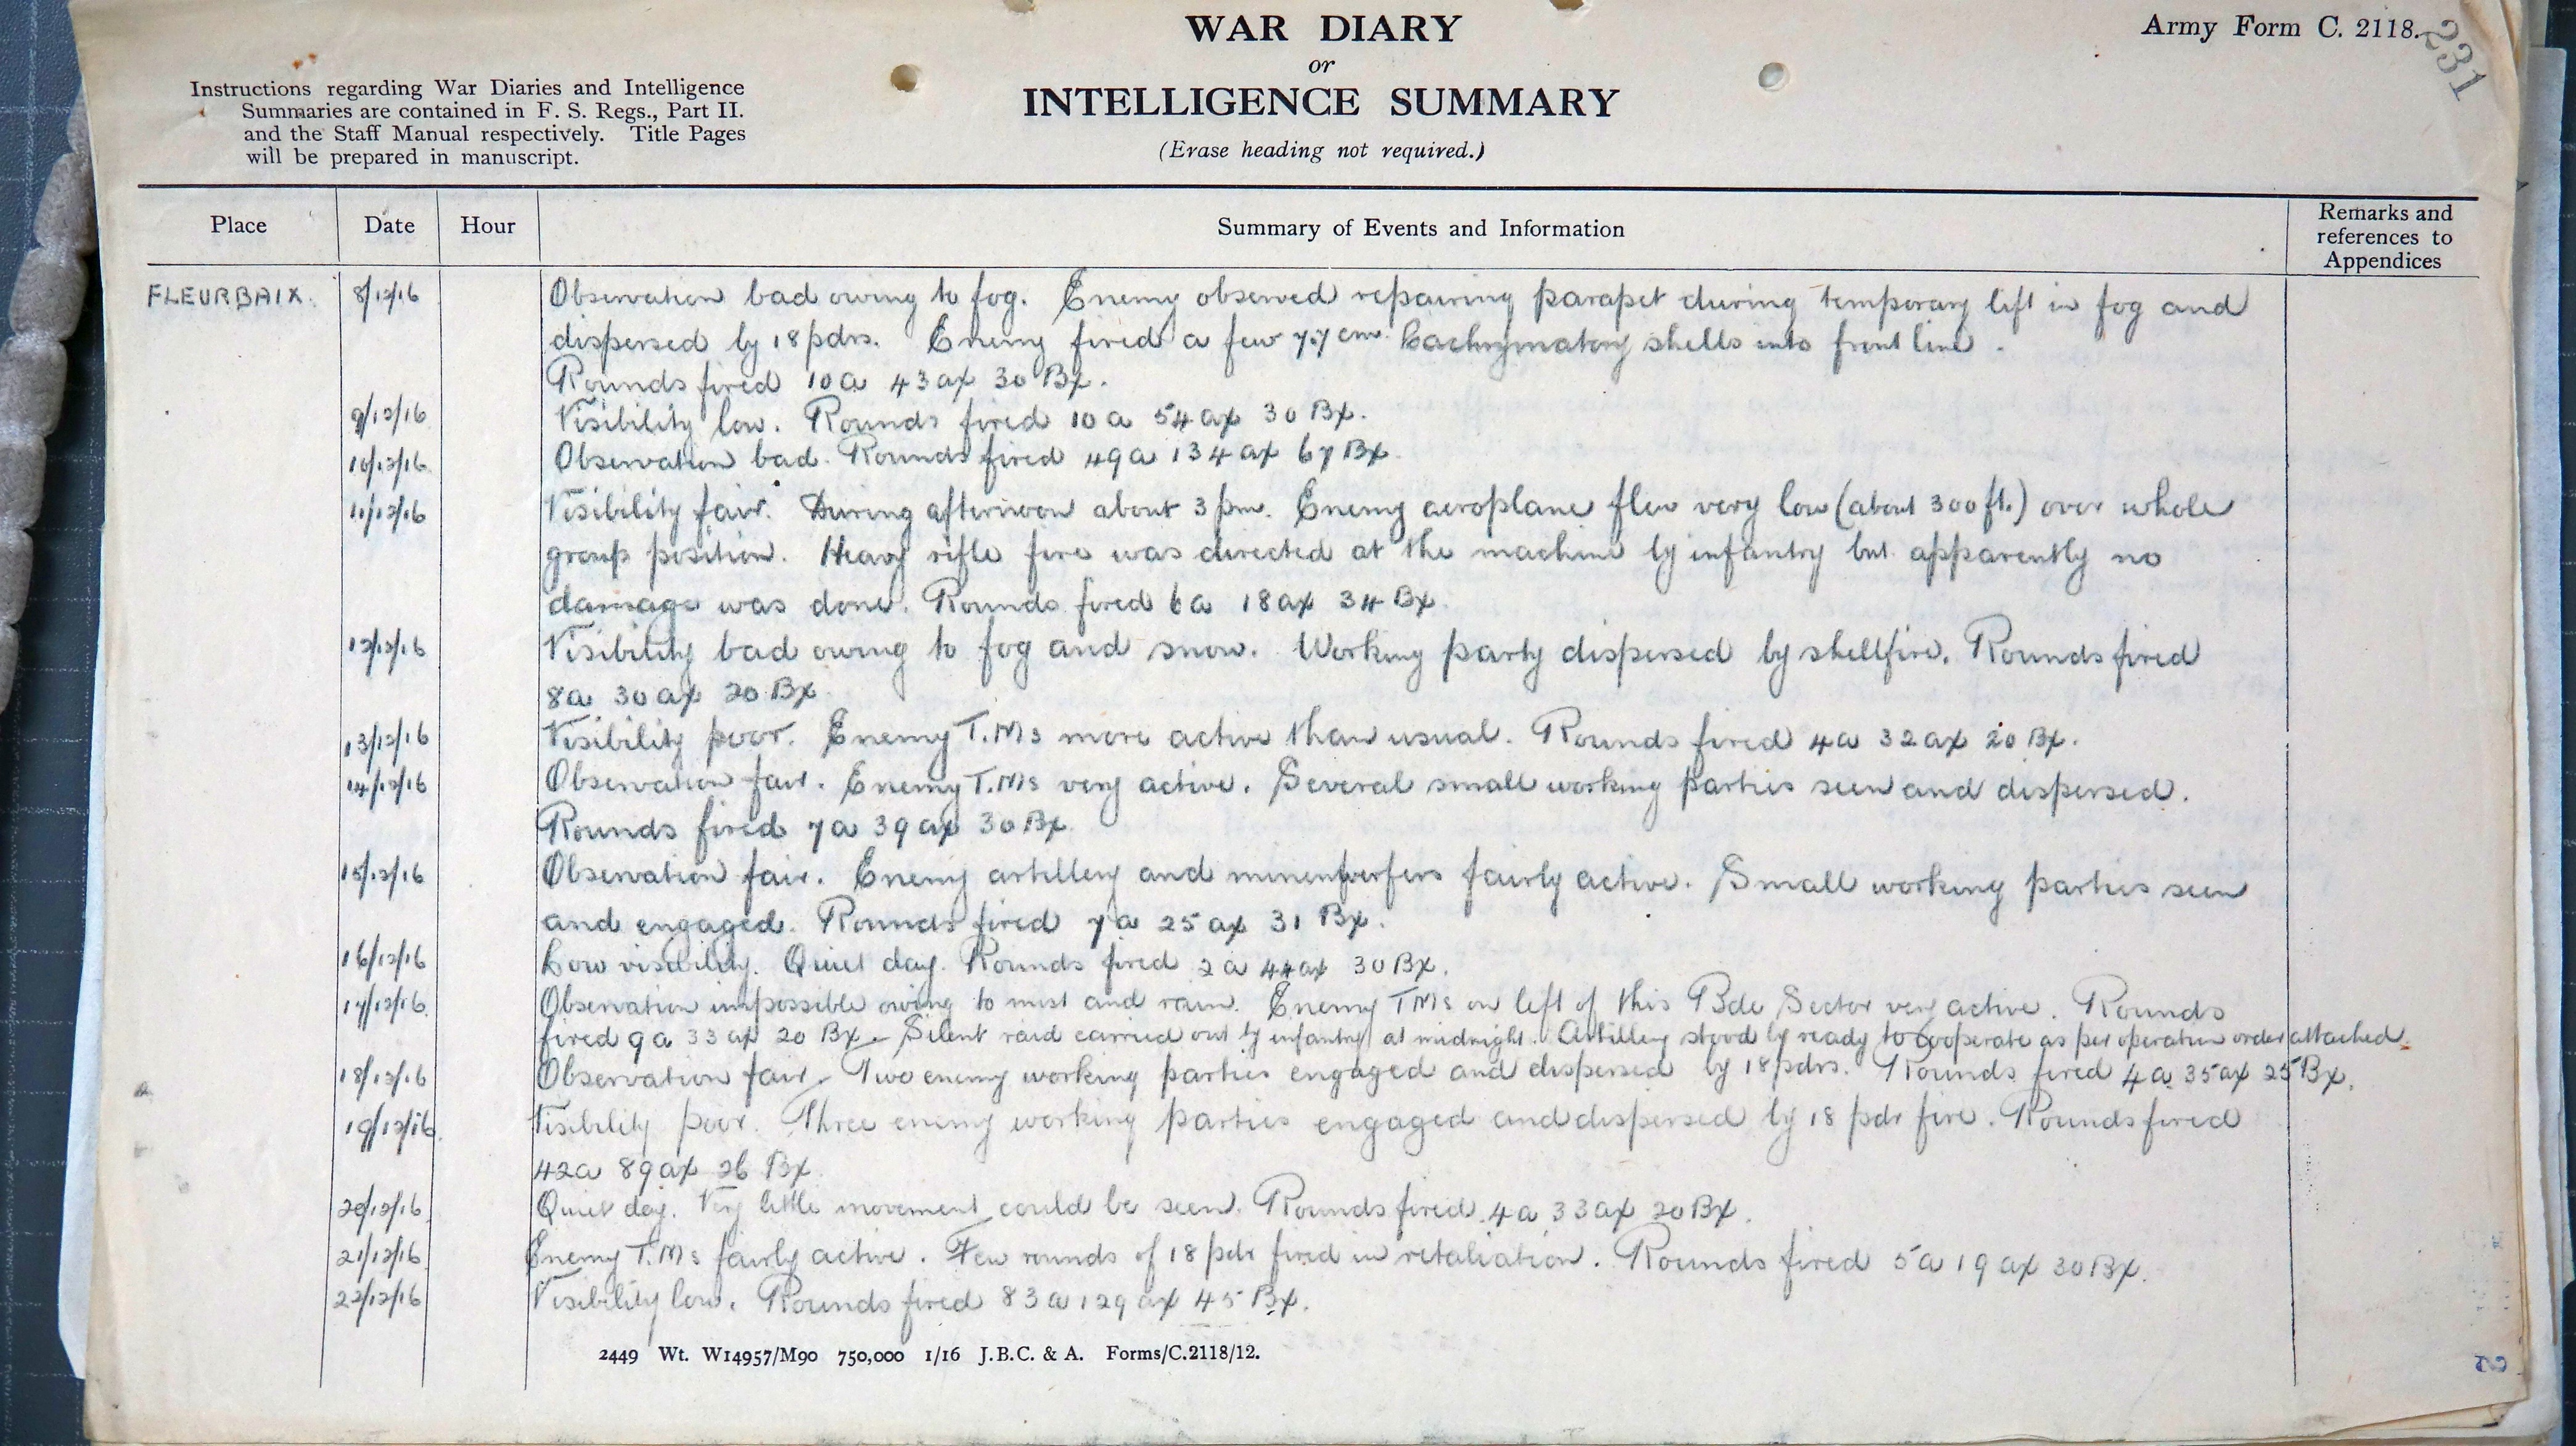 WAR DIARY
or
INTELLIGENCE SUMMARY
(Erase heading not required.)
Army Form C. 2118.
231
Instructions regarding War Diaries and Intelligence
Summaries are contained in F. S. Regs., Part II.
and the Staff Manual respectively. Title Pages
will be prepared in manuscript.
Place Date Hour Summary of Events and Information Remarks and
references to
Appendices
FLEURBAIX. 8/12/16 Observation bad owing to fog. Enemy observed repairing parapet during temporary lift in fog and
dispersed by 18 pdrs. Enemy fired a few 7.7 cm. Lachrymatory shells into front line.
Rounds fired 10a 43ax 30 Bx.
9/12/16 Visibility low. Rounds fired 10a 54ax 30 Bx.
10/12/16 Observation bad. Rounds fired 49a 134ax 67Bx.
11/12/16 Visibility fair. During afternoon about 3 pm. Enemy aeroplane flew very low (about 300 ft.) over whole
group position. Heavy rifle fire was directed at the machine by infantry but apparently no
damage was done. Rounds fired 6a 18ax 34 Bx.
12/12/16 Visibility bad owing to fog and snow. Working party dispersed by shellfire. Rounds fired
8a 30ax 20 Bx
13/12/16 Visibility poor. Enemy T.Ms more active than usual. Rounds fired 4a 32ax 20 Bx.
14/12/16 Observation fair. Enemy T.Ms very active. Several small working parties seen and dispersed.
Rounds fired 7a 39ax 30 Bx.
15/12/16 Observation fair. Enemy artillery and minenwerfers fairly active. Small working parties seen
and engaged. Rounds fired 7a 25ax 31 Bx.
16/12/16 Low visibility. Quiet day. Rounds fired 2a 44ax 30 Bx.
17/12/16 Observation impossible owing to mist and rain. Enemy TMs on left of this Bde Sector very active. Rounds
fired 9a 33ax 20 Bx. Silent raid carried out by infantry at midnight. Artillery stood by ready to cooperate as per operation order attached.
18/12/16 Observation fair. Two enemy working parties engaged and dispersed by 18pdrs. Rounds fired 4a 35ax 25 Bx.
19/12/16 Visibility poor. Three enemy working parties engaged and dispersed by 18 pdr fire. Rounds fired
42a 89ax 26 Bx
20/12/16 Quiet day. Very little movement could be seen. Rounds fired 4a 33ax 20Bx.
21/12/16 Enemy T.Ms fairly active. Few rounds of 18 pdr fired in retaliation. Rounds fired 5a 19ax 30Bx.
22/12/16 Visibility low. Rounds fired 83a 129ax 45 Bx.
2449 Wt. W14957/M90 750,000 1/16 J.B.C. & A. Forms/C.2118/12.